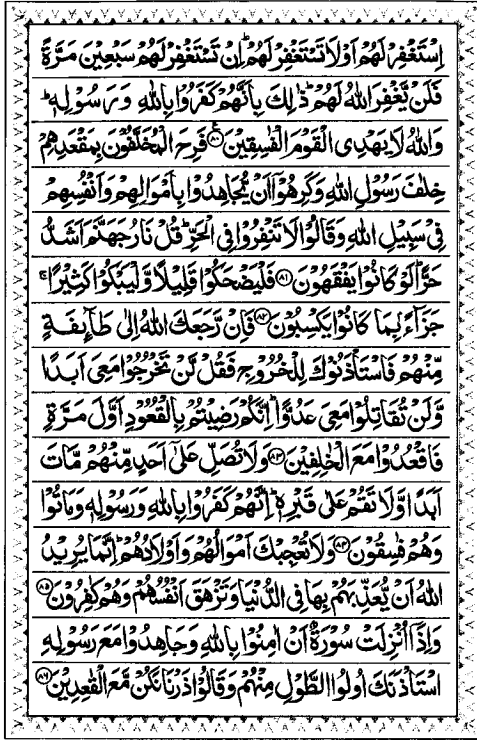 اِسْتَغْفِرْ لَهُمْ اَوْ لَا تَسْتَغْفِرْ لَهُمْ ؕ اِنْ تَسْتَغْفِرْ لَهُمْ سَبْعِيْنَ مَرَّةً
فَلَنْ يَّغْفِرَ اللّٰهُ لَهُمْ ؕ ذٰلِكَ بِاَنَّهُمْ كَفَرُوْا بِاللّٰهِ وَرَسُوْلِهٖ ؕ
وَاللّٰهُ لَا يَهْدِى الْقَوْمَ الْفٰسِقِيْنَ ۠﴿۸۰﴾ فَرِحَ الْمُخَلَّفُوْنَ بِمَقْعَدِهِمْ
خِلٰفَ رَسُوْلِ اللّٰهِ وَكَرِهُوْۤا اَنْ يُّجَاهِدُوْا بِاَمْوَالِهِمْ وَاَنْفُسِهِمْ
فِىْ سَبِيْلِ اللّٰهِ وَقَالُوْا لَا تَنْفِرُوْا فِى الْحَرِّ ؕ قُلْ نَارُ جَهَنَّمَ اَشَدُّ
حَرًّا ؕ لَوْ كَانُوْا يَفْقَهُوْنَ ﴿۸۱﴾ فَلْيَضْحَكُوْا قَلِيْلًا وَّلْيَبْكُوْا كَثِيْرًا ۚ
جَزَآءًۢ بِمَا كَانُوْا يَكْسِبُوْنَ ﴿۸۲﴾ فَاِنْ رَّجَعَكَ اللّٰهُ اِلٰى طَآئِفَةٍ
مِّنْهُمْ فَاسْتَاْذَنُوْكَ لِلْخُرُوْجِ فَقُلْ لَّنْ تَخْرُجُوْا مَعِىَ اَبَدًا
وَّلَنْ تُقَاتِلُوْا مَعِىَ عَدُوًّا ؕ اِنَّكُمْ رَضِيْتُمْ بِالْقُعُوْدِ اَوَّلَ مَرَّةٍ
فَاقْعُدُوْا مَعَ الْخٰلِفِيْنَ ﴿۸۳﴾ وَلَا تُصَلِّ عَلٰٓى اَحَدٍ مِّنْهُمْ مَّاتَ
اَبَدًا وَّلَا تَقُمْ عَلٰى قَبْرِهٖ ؕ اِنَّهُمْ كَفَرُوْا بِاللّٰهِ وَرَسُوْلِهٖ وَمَاتُوْا
وَهُمْ فٰسِقُوْنَ ﴿۸۴﴾ وَلَا تُعْجِبْكَ اَمْوَالُهُمْ وَاَوْلَادُهُمْ ؕ اِنَّمَا يُرِيْدُ
اللّٰهُ اَنْ يُّعَذِّبَهُمْ بِهَا فِى الدُّنْيَا وَتَزْهَقَ اَنْفُسُهُمْ وَهُمْ كٰفِرُوْنَ ﴿۸۵﴾
وَاِذَاۤ اُنْزِلَتْ سُوْرَةٌ اَنْ اٰمِنُوْا بِاللّٰهِ وَجَاهِدُوْا مَعَ رَسُوْلِهِ
اسْتَاْذَنَكَ اُولُوا الطَّوْلِ مِنْهُمْ وَقَالُوْا ذَرْنَا نَكُنْ مَّعَ الْقٰعِدِيْنَ ﴿۸۶﴾